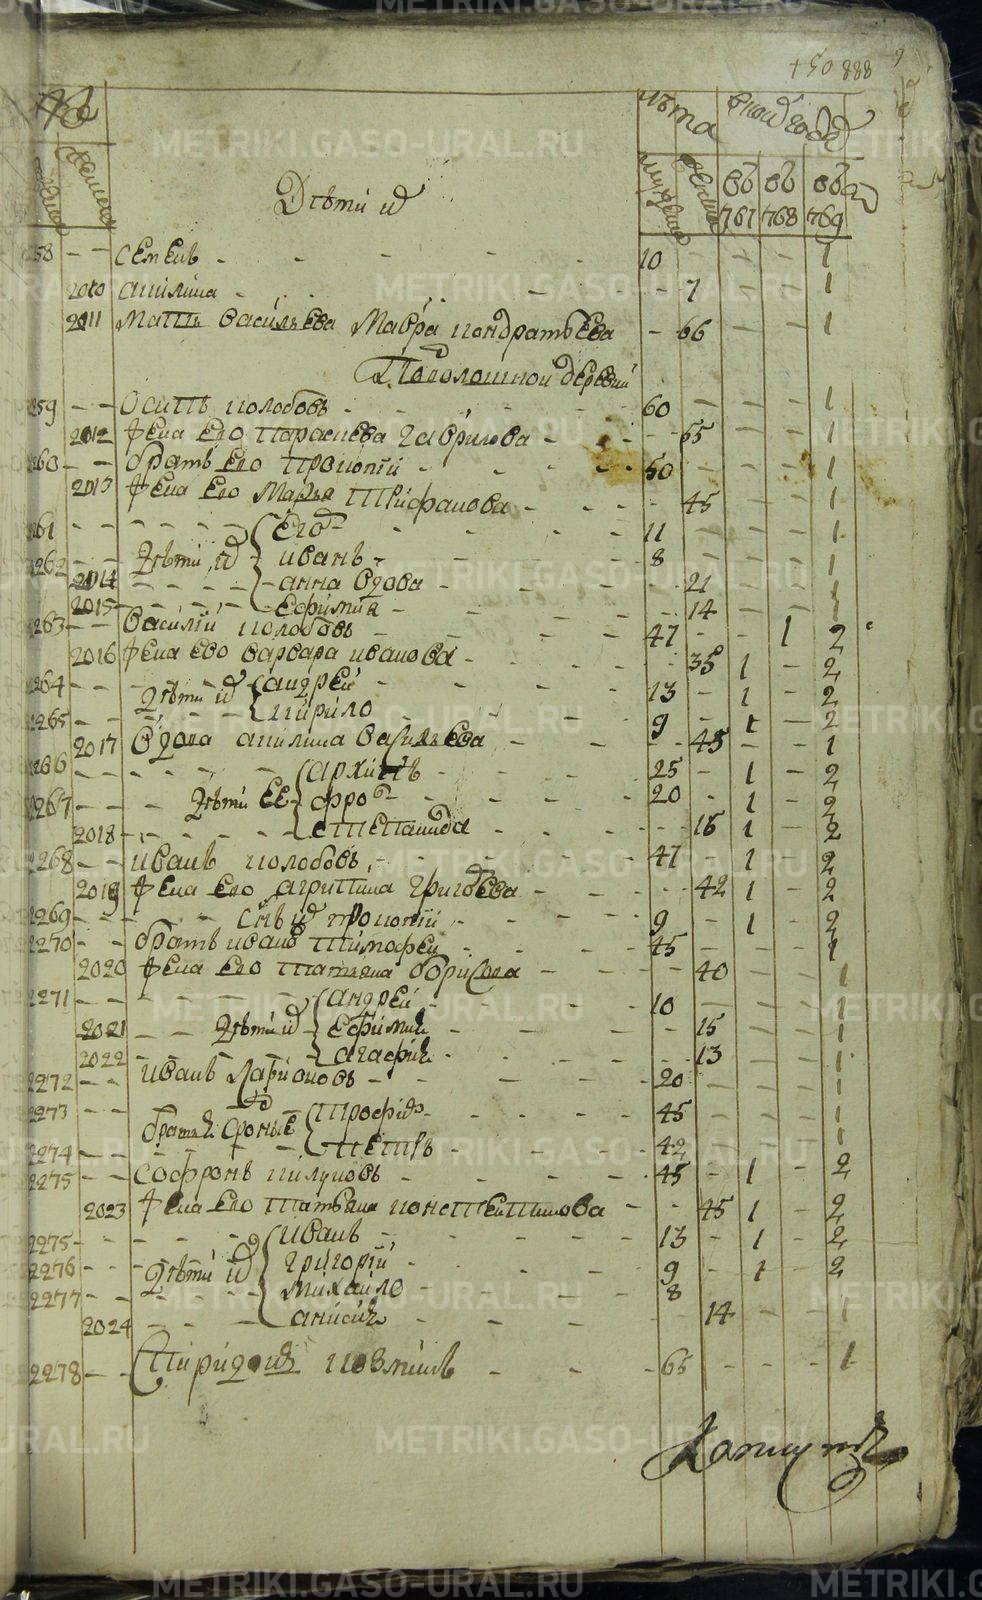 888
лѣта
в коем годѣ
мужеска
женска
въ 767
въ 768
въ 769
Дѣти их
58 - - Семенъ - 10 - - - 1
2010 Акилина - 7 - - 1
2011 Мать Васильева Мавра Кондратьева - 66 - - 1
Поволошной деревни
2259 - - Осипъ Колобовъ - 60 - - - 1
2012 Жена ево Парасковья Гаврилова - 55 - - 1
2260 - - братъ ево Прокопій - 50 - - - 1
2013 Жена ево Марья Трифанова - 45 - - 1
2261 - - Егоръ - 11 - - - 1
2262 - - Дѣти их Иванъ - 8 - - - 1
2014 - Анна вдова - 21 - - 1
2015 - Ефимия - 14 - - 1
2263 - - Василій Колобовъ - 47 - - 1 2
2016 Жена ево Варвара Иванова - 35 1 - 2
2264 - - Дѣти их Андрей - 13 - 1 - 2
2265 - - Кирило - 9 - 1 - 2
2017 Вдова Акилина Васильева - 45 - - 1
2266 - - Архипъ - 25 - 1 - 2
2267 - - Дѣти ее Фролъ - 20 - 1 - 2
2018 - Степанида - 15 1 - 2
2268 - - Иванъ Колобовъ - 47 - 1 - 2
2019 Жена ево Агрипина Григорьева - 42 1 - 2
2269 - - Сынъ их Прокопій - 9 - 1 - 2
2270 - - братъ Иванов Тимофей - 45 - - - 1
2020 Жена ево Татьяна Борисова - 40 - - 1
2271 - - Андрей - 10 - - - 1
2021 - - Дѣти их Ефимия - 15 - - 1
2022 - - Агафия - 13 - - 1
2272 - - Иванъ Ларионовъ - 20 - - - 1
2273 - - братья сродные Трофимъ - 45 - - - 1
2274 - - Петръ - 42 - - - 1
2275 - - Софронъ Пилуновъ - 45 - 1 - 2
2023 Жена ево Татьяна Констентинова - 45 1 - 2
2275 - - Иванъ - 13 - 1 - 2
2276 - - Дѣти их Григорій - 9 - 1 - 2
2277 - - Михайло - 8
2024 - Анисия - 14 - - 1
2278 - - Спиридонъ - 65 - - - 1
METRIKI.GASO-URAL.RU